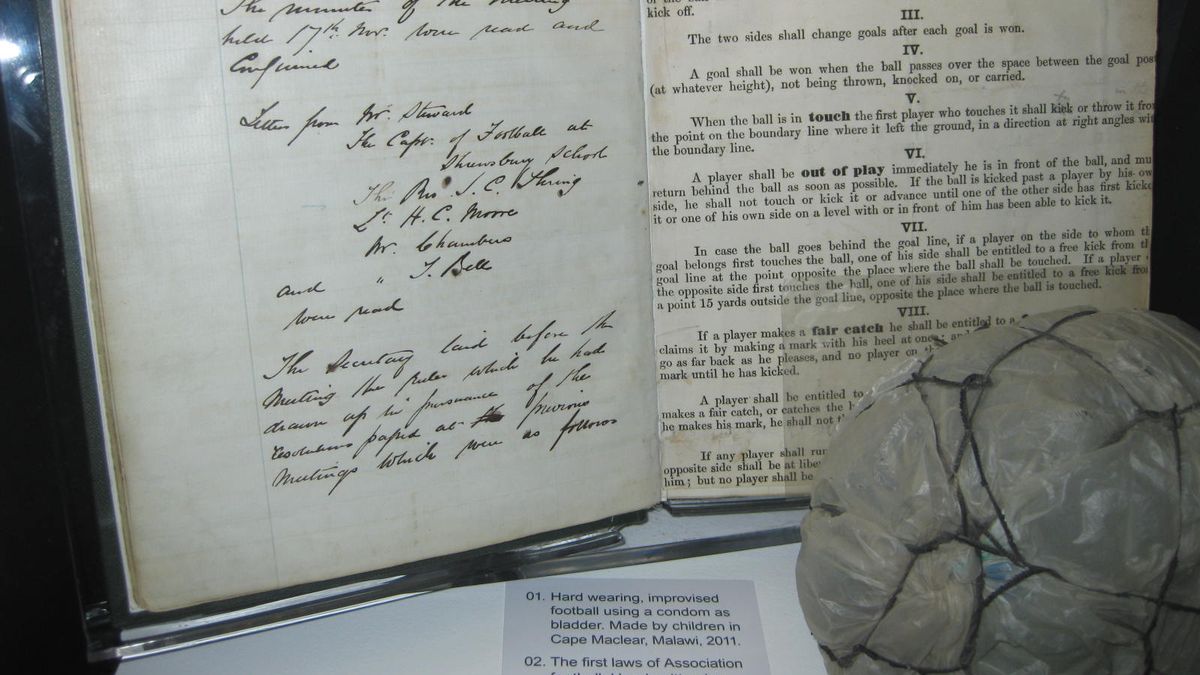 The minutes of the Meeting
held 17th. Nov. were read and
Confirmed
Letters from Mr. Steward
The Capt. of Football at
Shrewsbury School
The Rev. J. C. Thring
Lt. H. C. Moore
Mr. Chambers
and " J. Bell
were read
The Secretary laid before the
Meeting the rules which he had
drawn up in pursuance of the
resolutions passed at previous
Meetings which were as follows
kick off.
III.
The two sides shall change goals after each goal is won.
IV.
A goal shall be won when the ball passes over the space between the goal post
(at whatever height), not being thrown, knocked on, or carried.
V.
When the ball is in touch the first player who touches it shall kick or throw it from
the point on the boundary line where it left the ground, in a direction at right angles wit
the boundary line.
VI.
A player shall be out of play immediately he is in front of the ball, and mu
return behind the ball as soon as possible. If the ball is kicked past a player by his ow
side, he shall not touch or kick it or advance until one of the other side has first kicke
it or one of his own side on a level with or in front of him has been able to kick it.
VII.
In case the ball goes behind the goal line, if a player on the side to whom th
goal belongs first touches the ball, one of his side shall be entitled to a free kick from th
goal line at the point opposite the place where the ball shall be touched. If a player
the opposite side first touches the ball, one of his side shall be entitled to a free kick from
a point 15 yards outside the goal line, opposite the place where the ball is touched.
VIII.
If a player makes a fair catch he shall be entitled to a
claims it by making a mark with his heel at once; and
go as far back as he pleases, and no player on
mark until he has kicked.
A player shall be entitled to
makes a fair catch, or catches the
he makes his mark, he shall not
If any player shall run
opposite side shall be at
him; but no player shall be
01. Hard wearing, improvised
football using a condom as
bladder. Made by children in
Cape Maclear, Malawi, 2011.
02. The first laws of Association